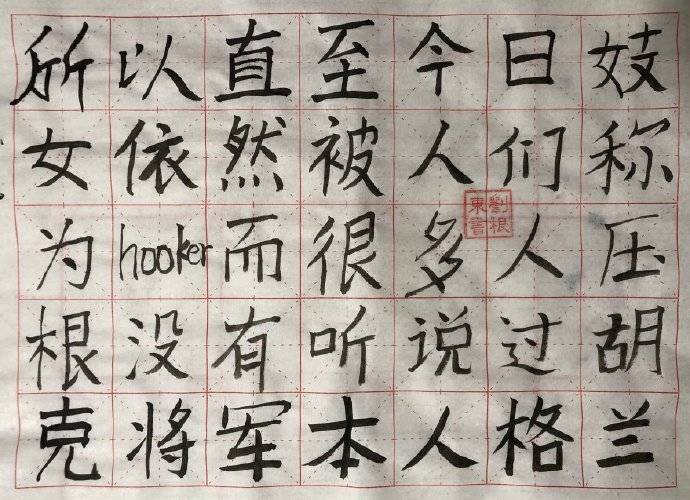 所以直至今日妓
女依然被人们称
为hooker而很多人压
根没有听说过胡
克将军本人格兰
劉根
東書